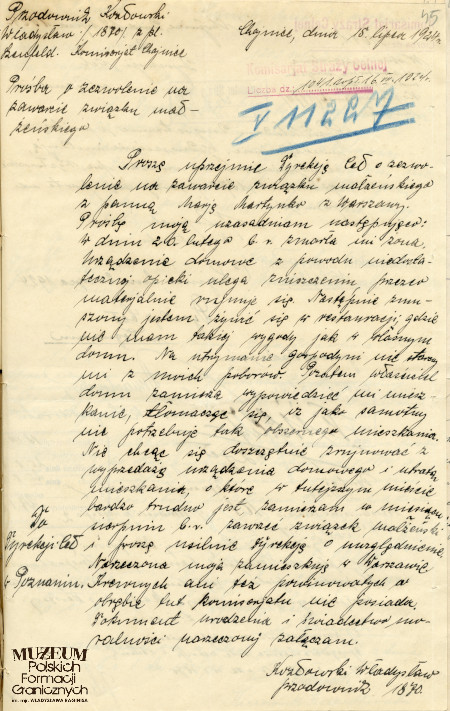 55
Przodownik Kozłowski
Władysław /1870/ z pl.
Komisarjat Chojnice
Chojnice, dnia 18. lipca 1924 r.
Komisarjat Straży Celnej
Liczba cz. 1041 16 VII 1924.
V 11227
Prośba o zezwolenie na
zawarcie związku mał-
żeńskiego
Proszę uprzejmie Dyrekcję Ceł o zezwo-
lenie na zawarcie związku małżeńskiego
z panną Marją Martynko z Warszawy.
Prośbę moją uzasadniam następująco:
W dniu 20. lutego b. r. zmarła mi żona.
Urządzenie domowe z powodu niedosta-
tecznej opieki ulega zniszczeniu przez co
materjalnie rujnuję się. Następnie zmu-
szony jestem żywić się w restauracji, gdzie
nie mam takiej wygody jak w własnym
domu. Na utrzymanie gospodyni nie starczy
mi z moich poborów. Pozatem właściciel
domu zamierza wypowiedzieć mi miesz-
kanie, tłomacząc się, iż jako samotny
nie potrzebuję tak obszernego mieszkania.
Nie chcąc się doszczętnie zrujnować z
wyprzedażą urządzenia domowego i utratą
mieszkania, o które w tutejszym mieście
bardzo trudno jest, zamierzam w miesiącu
sierpniu b. r. zawrzeć związek małżeński
i proszę usilnie Dyrekcję o uwzględnienie.
Narzeczona moja zamieszkuje w Warszawie.
Krewnych ani też powinowatych w
obrębie tut. komisarjatu nie posiada.
Dokument urodzenia i świadectwo mo-
ralności narzeczonej załączam.
Do
Dyrekcji Ceł
w Poznaniu.
Kozłowski Władysław
przodownik 1870.
MUZEUM
Polskich
Formacji
Granicznych
im. mjr. WŁADYSŁAWA RAGINISA